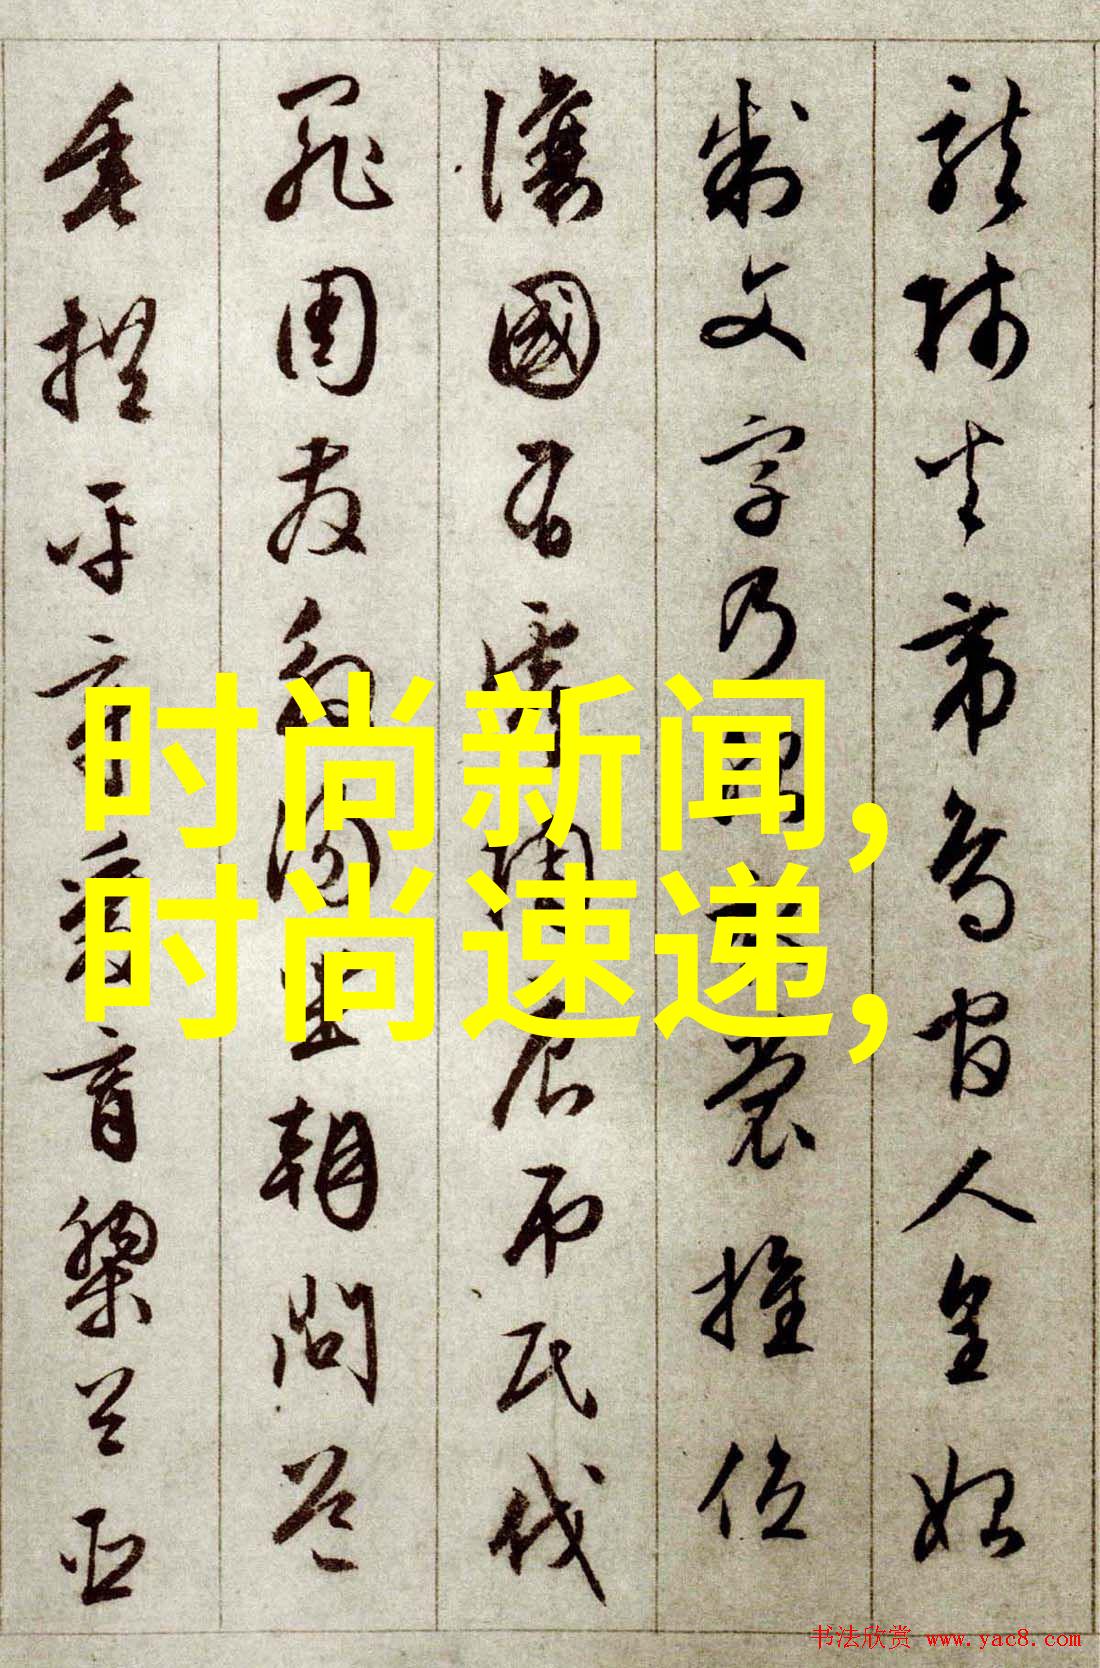 龍師火帝鳥官人皇始
制文字乃服衣裳推位
讓國有虞陶唐弔民伐
罪周發殷湯坐朝問道
垂拱平章愛育黎首臣
时尚新闻,
时尚速递,
书法欣赏 www.yac8.com